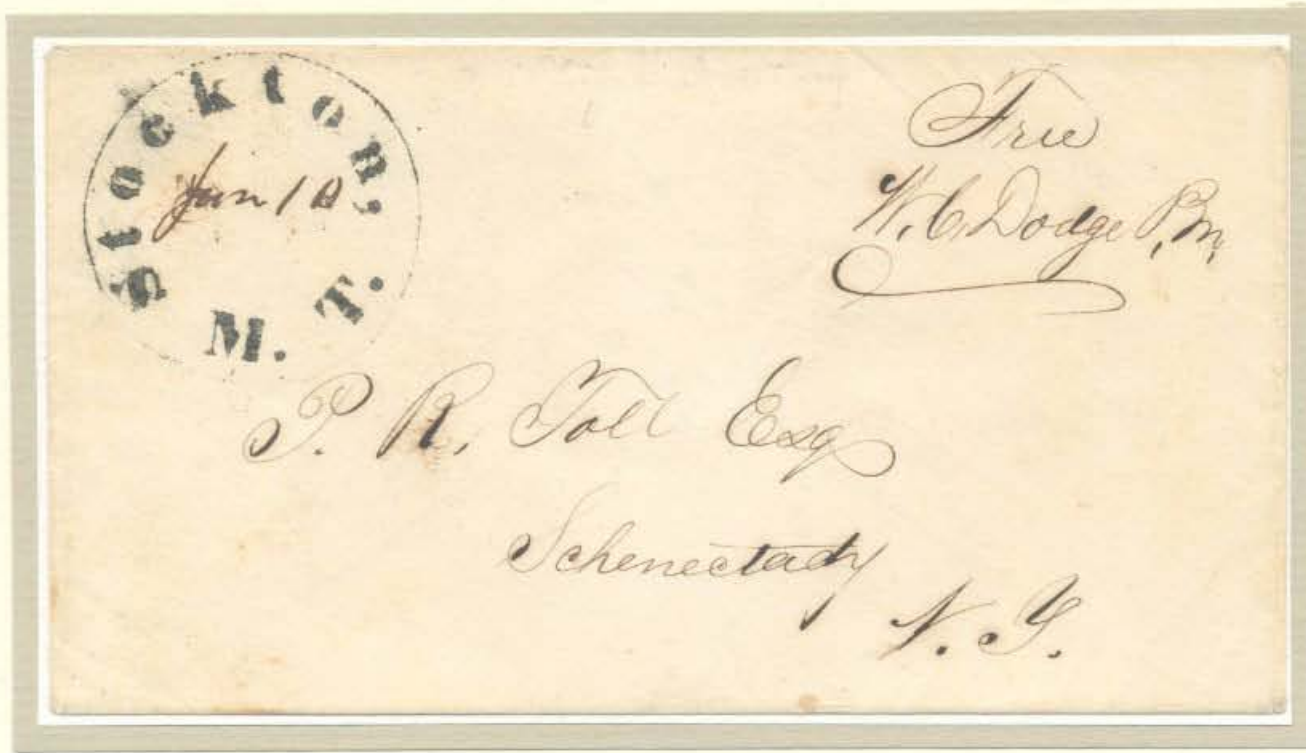 Stockton,
Jun 10
M. T.
Free
W. C. Dodge P. m.
P. R. Toll Esq
Schenectady
N. Y.